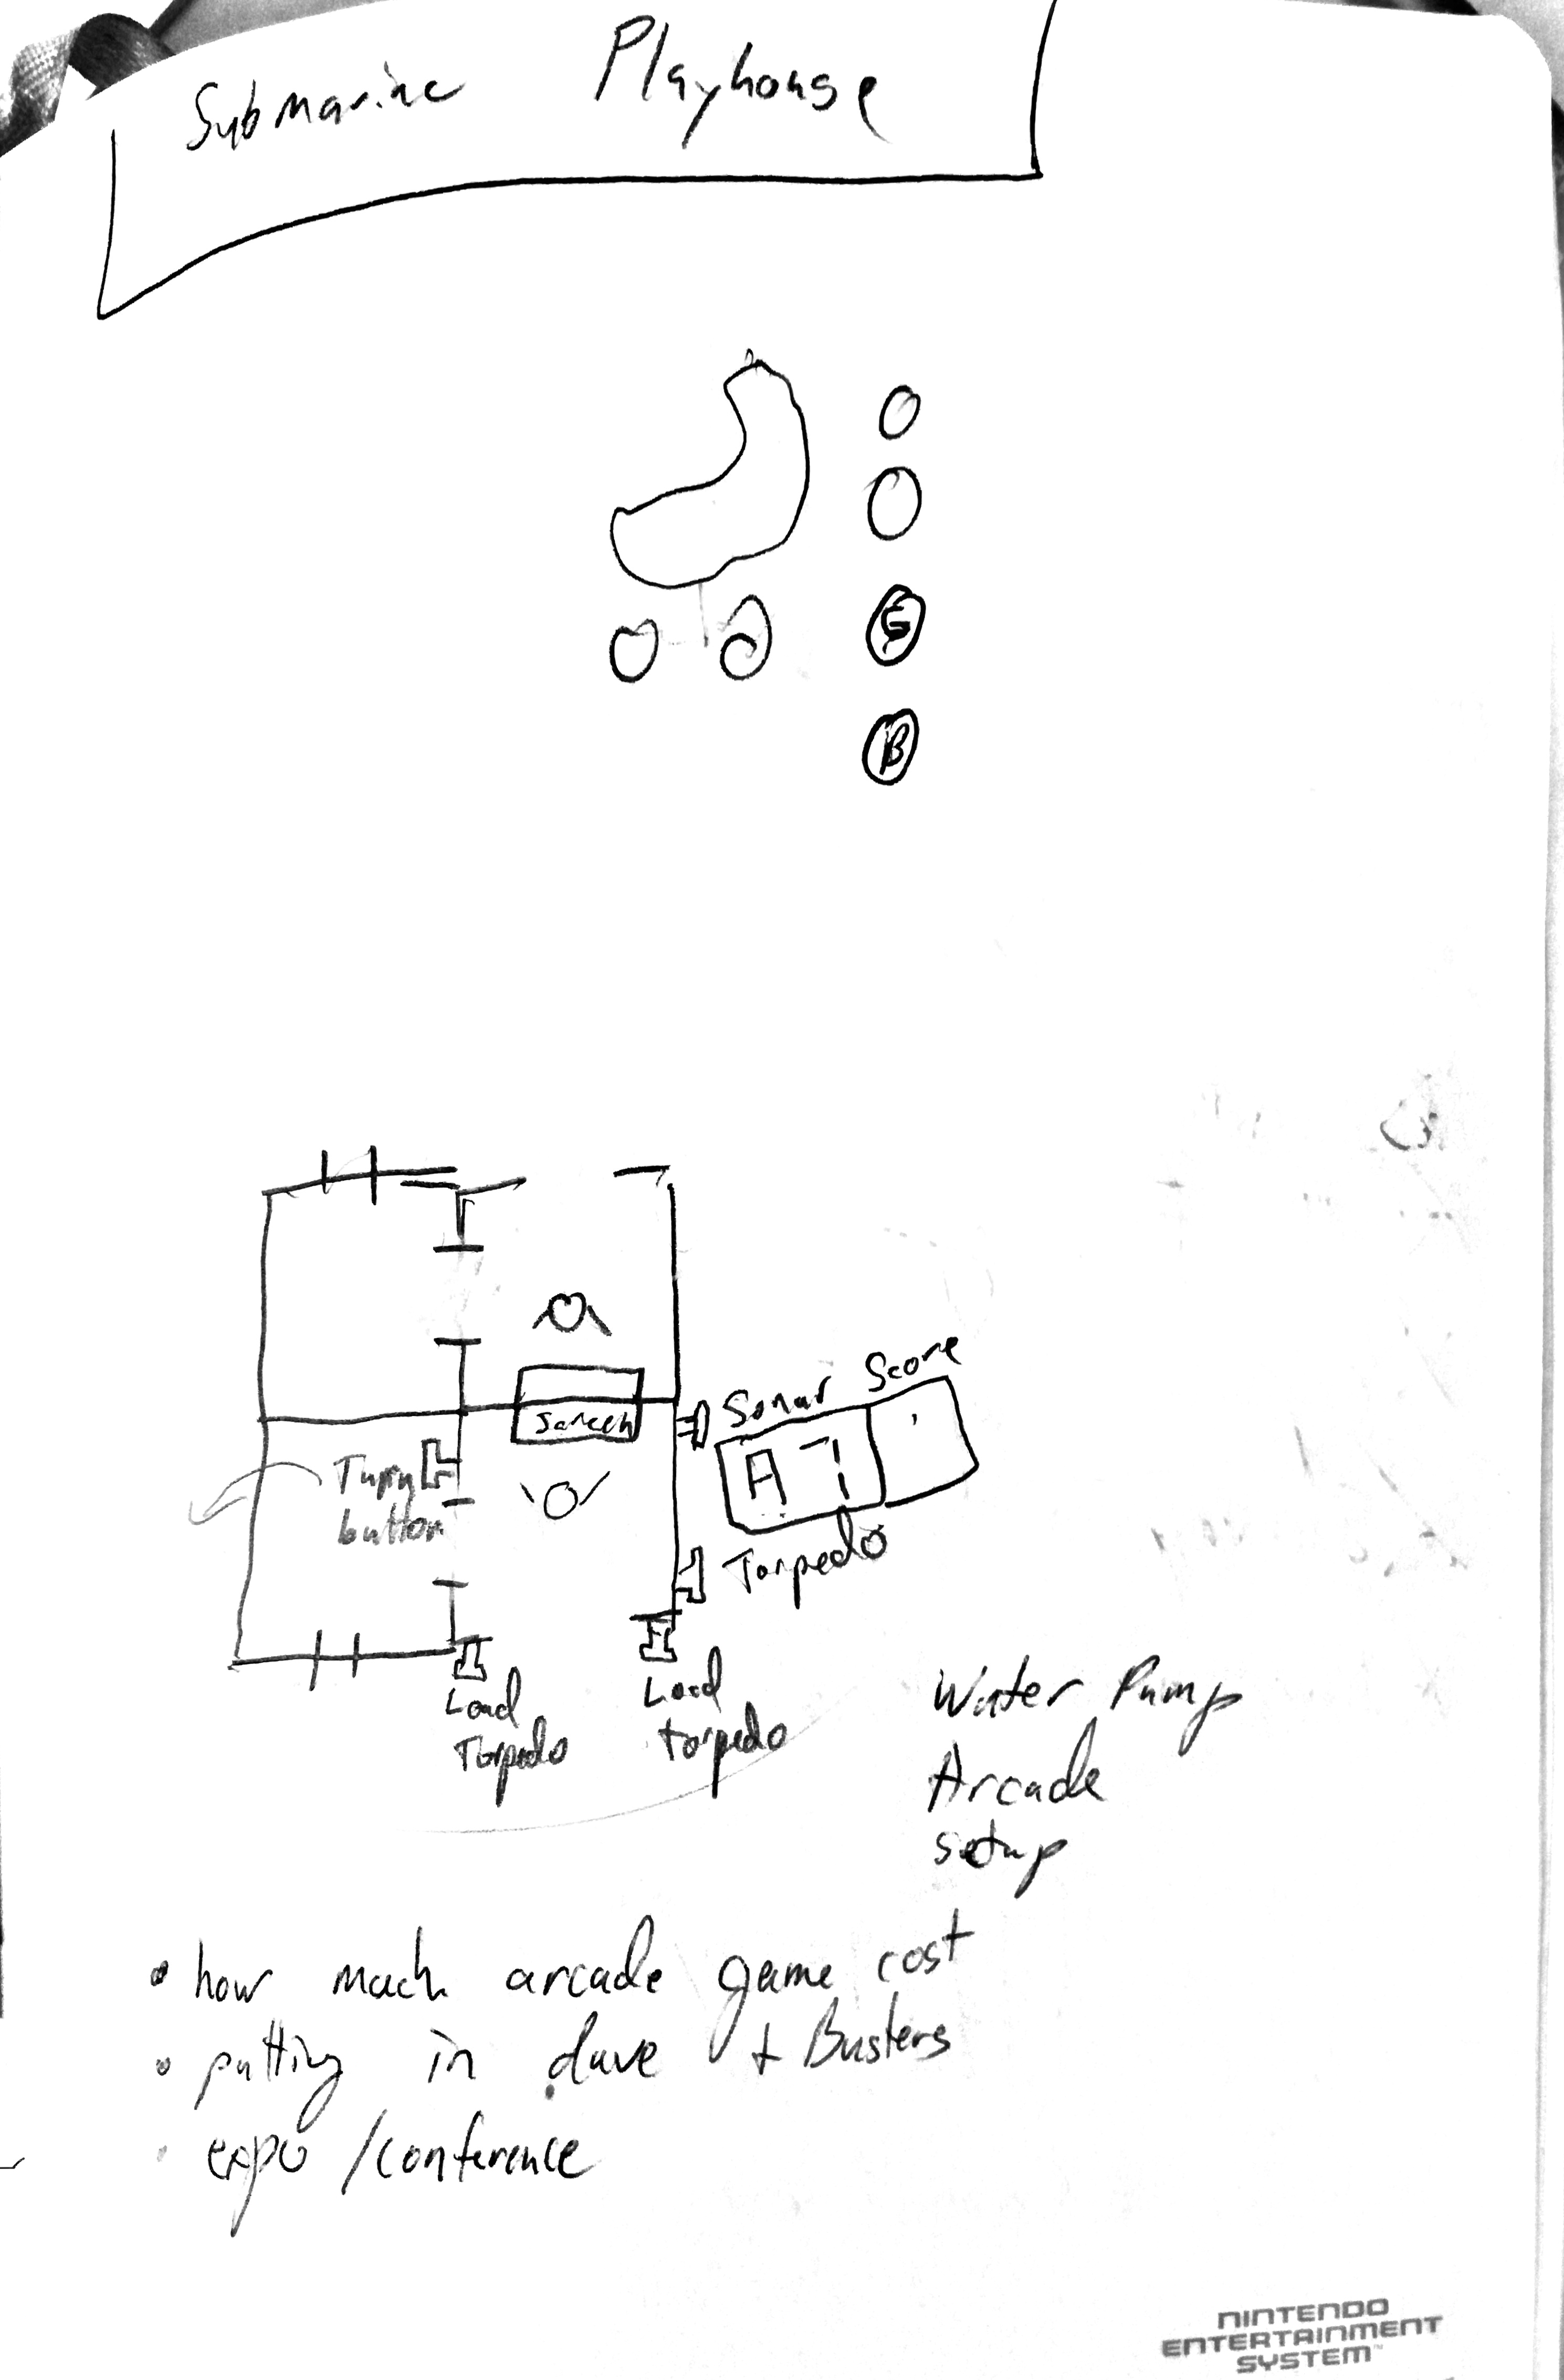 Submarine Playhouse
S
B
Screen
Sonar Score
A 7
Turn
button
Torpedo
Load
Torpedo
Load
torpedo
Water Pump
Arcade
setup
• how much arcade game cost
• putting in dave + Busters
• expo / conference
NINTENDO
ENTERTAINMENT
SYSTEM™